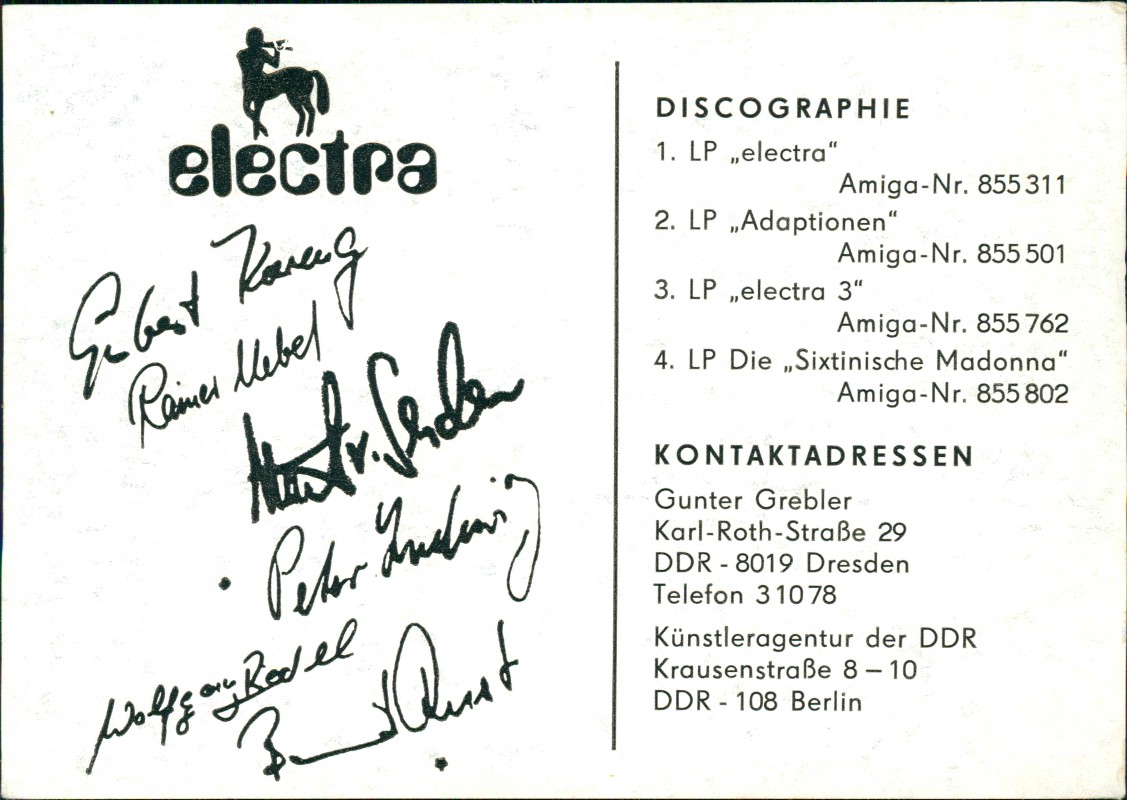 electra
Gisbert Koreng
Rainer Uebel
v.
Peter Ludewig
Wolfgang Riedel
Bernd Aust
DISCOGRAPHIE
1. LP „electra“
Amiga-Nr. 855311
2. LP „Adaptionen“
Amiga-Nr. 855501
3. LP „electra 3“
Amiga-Nr. 855762
4. LP Die „Sixtinische Madonna“
Amiga-Nr. 855802
KONTAKTADRESSEN
Gunter Grebler
Karl-Roth-Straße 29
DDR - 8019 Dresden
Telefon 31078
Künstleragentur der DDR
Krausenstraße 8 – 10
DDR - 108 Berlin